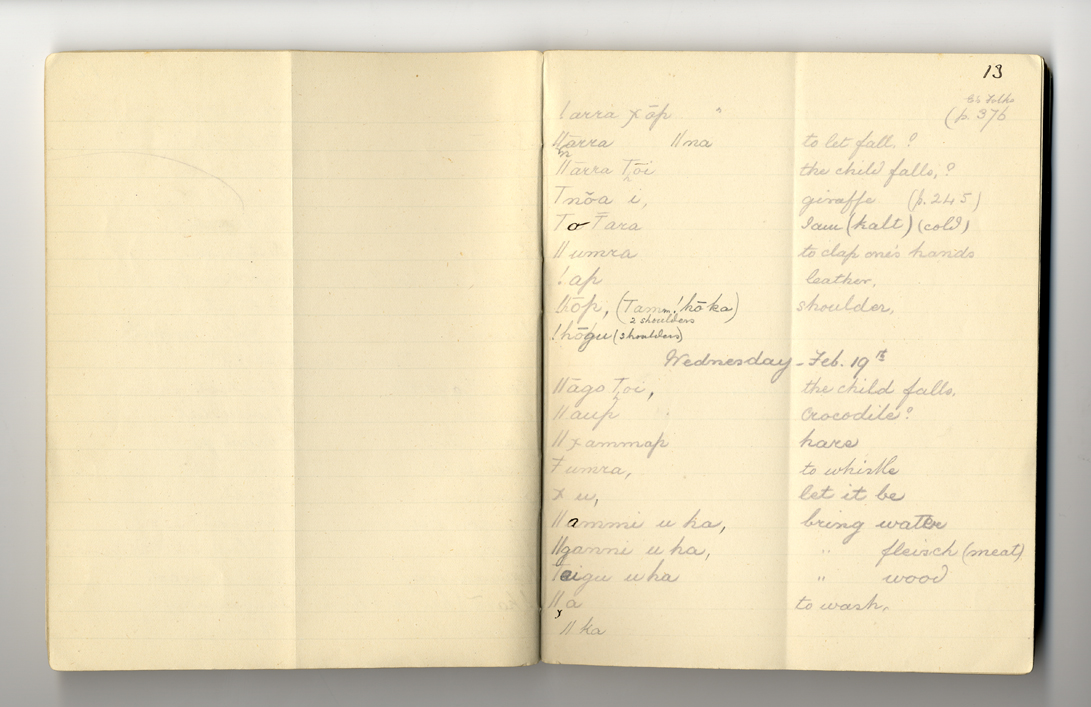 13
(p. 376
!arra χōp "
//ārra //na to let fall. ?
n
//ārra Tōi the child falls,?
Tnōa i, giraffe (p. 245)
To Tara I am (kalt) (cold)
//umra to clap one's hands
!ap leather,
!hōp, (Tamm!hōka) shoulder,
2 shoulders
!hōgu (3 shoulders)
Wednesday - Feb. 19th
//āgo Toi, the child falls,
//aup Crocodile?
//χammap hare
Ŧumra, to whistle
χ u, let it be
//ammi u ha, bring water
//ganni u ha, " fleisch (meat)
Taigu u ha " wood
//a to wash,
x
//ka